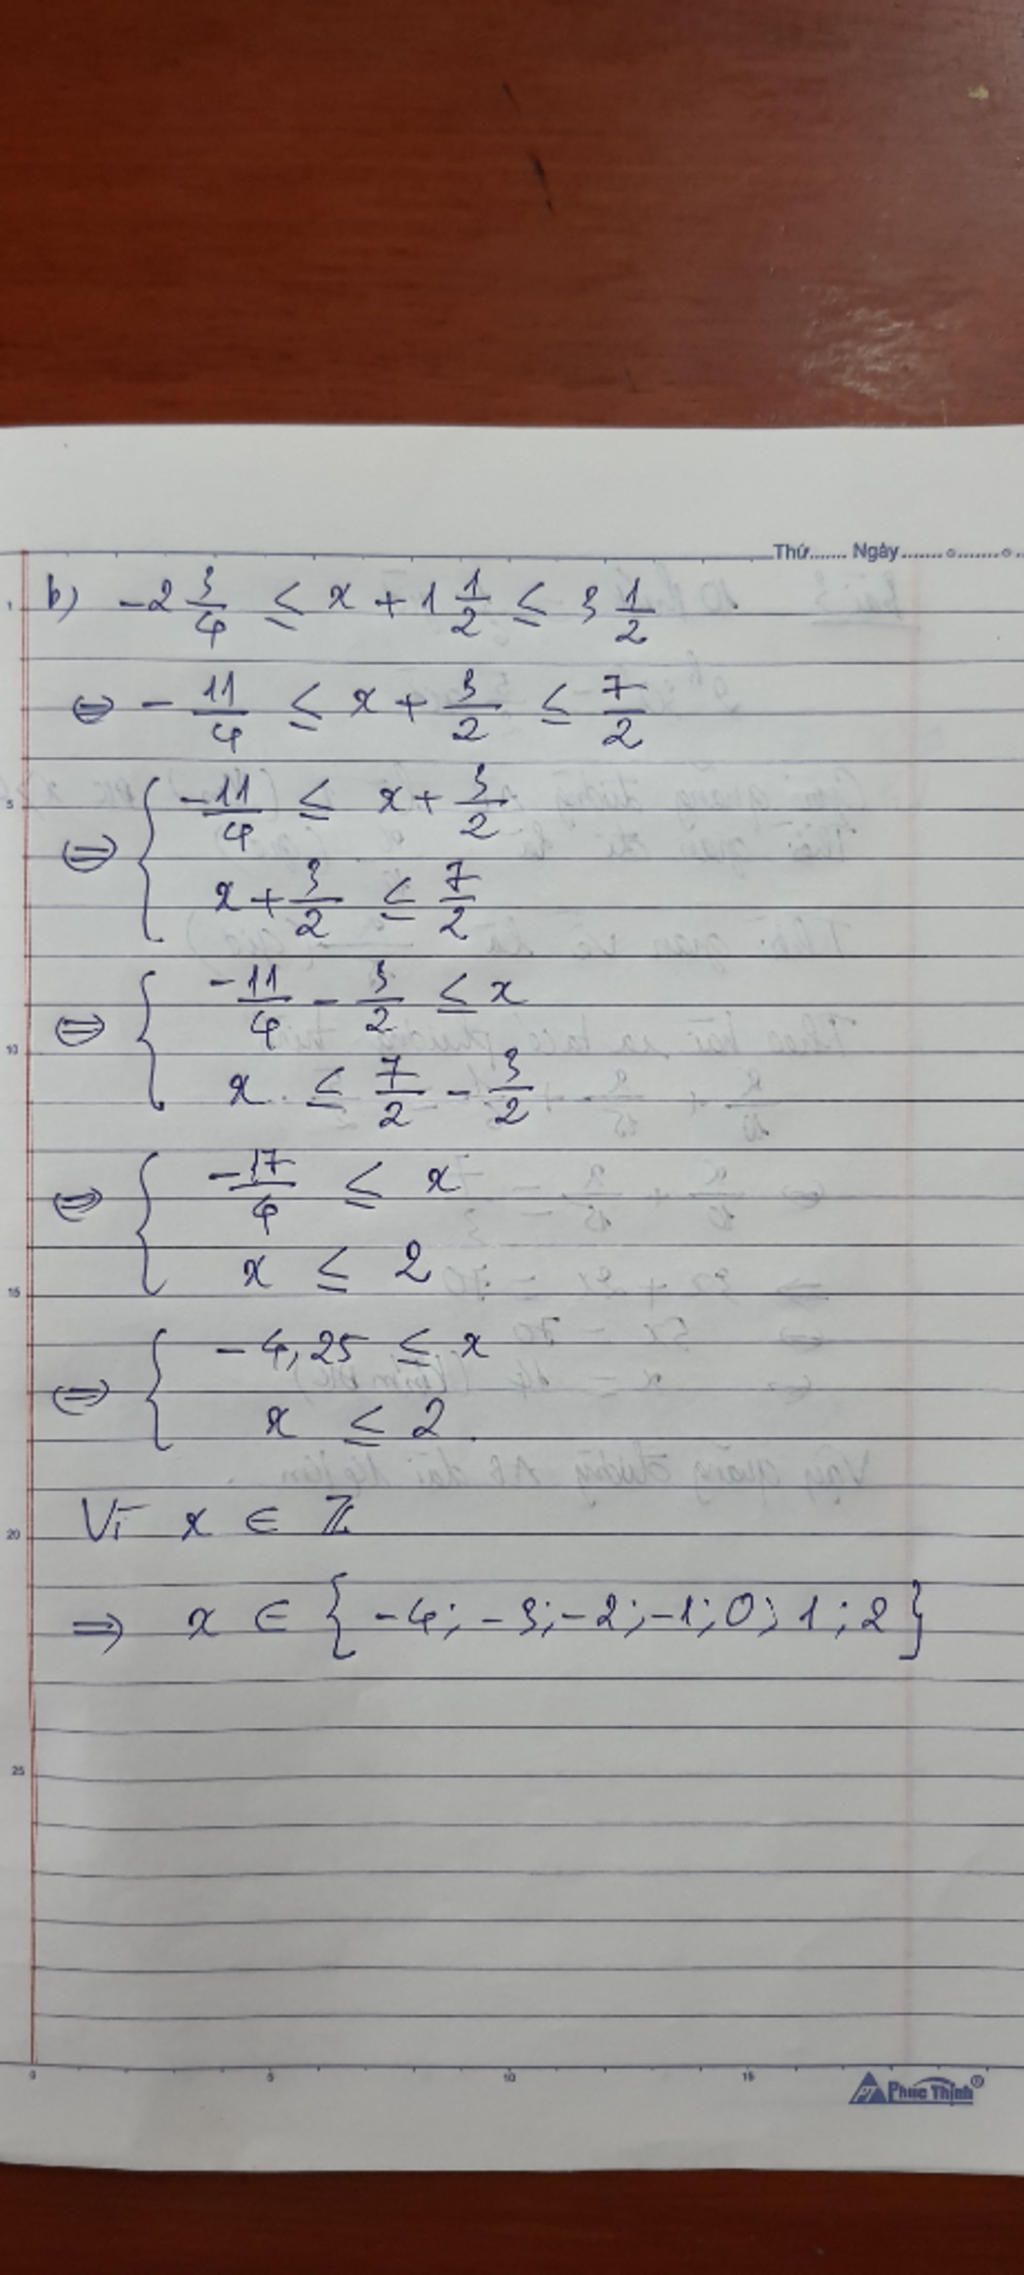 Thứ....... Ngày.......
b) -2 3/4 ≤ x + 1 1/2 ≤ 3 1/2
⇔ - 11/4 ≤ x + 3/2 ≤ 7/2
⇔ { -11/4 ≤ x + 3/2
x + 3/2 ≤ 7/2
⇔ { -11/4 - 3/2 ≤ x
x ≤ 7/2 - 3/2
⇔ { -17/4 ≤ x
x ≤ 2
⇔ { -4,25 ≤ x
x ≤ 2.
Vì x ∈ ℤ
⇒ x ∈ { -4; -3; -2; -1; 0; 1; 2 }
1
5
10
15
20
25
0 5 10 15
PT Phúc Thịnh®